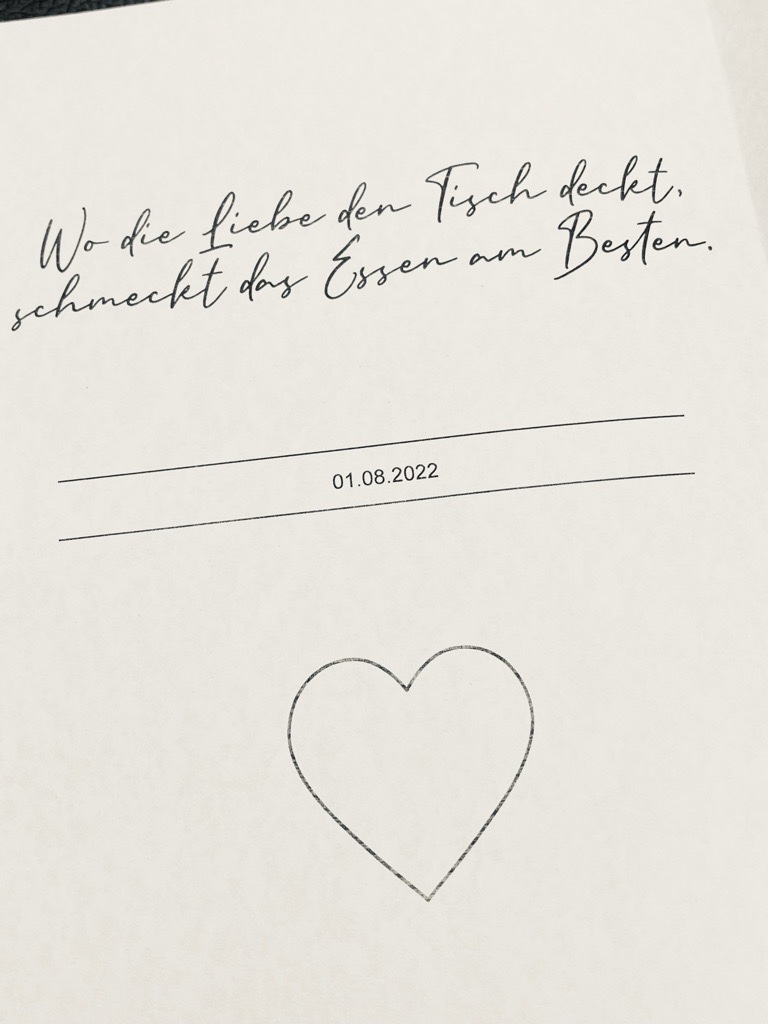 Wo die Liebe den Tisch deckt,
schmeckt das Essen am Besten.
01.08.2022